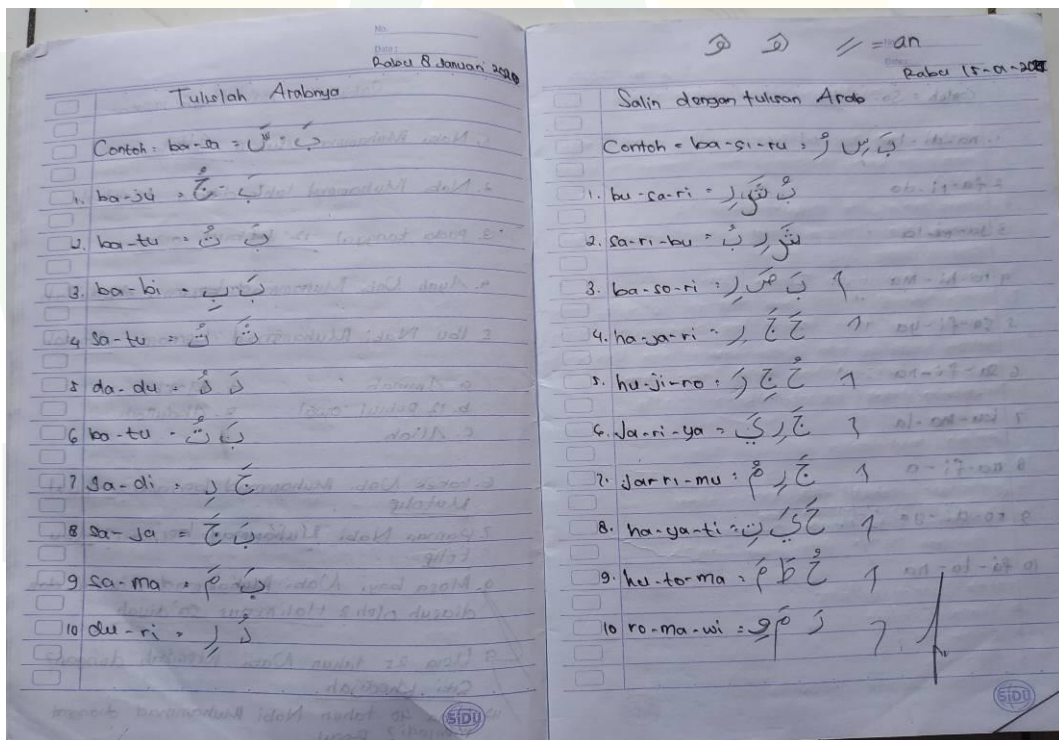 No.
Date:
Rabu 8 Januari 2020
Tulislah Arabnya
Contoh : ba-sa = بَ - سَ
1. ba-ju = بَ - جُ
2. ba-tu = بَ تُ
3. ba-bi = بَ بِ
4 Sa-tu = ثَ تُ
5 da-du = دَ دُ
6 ba-tu = بَ تُ
7 Ja-di = جَ دِ
8 Sa-ja =
9 Sa-ma =
10 du-ri = دُ رِ
SIDU
// = an
Rabu 15-01-
Salin dengan tulisan Arab
Contoh = ba-si-ru = بَ سِ رُ
1. bu-sa-ri = بُ شَ رِ
2. sa-ri-bu = شَ رِ بُ
3. ba-so-ri = بَ صَ رِ
4. ha-ja-ri = حَ جَ رِ
5. hu-ji-ro = حُ جِ رَ
6. Ja-ri-ya = جَ رِ يَ
7. Jarri-mu = جَ رِ مُ
8. ha-ya-ti = حَ يَ تِ
9. hu-to-ma = حُ طَ مَ
10 ro-ma-wi = رَ مَ وِ
SIDU